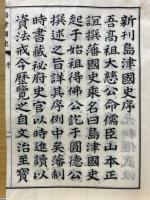 新刊島津國史序
吾高祖大慈公命儒臣山本正
誼撰藩國史乘名曰島津國史
起于始祖得佛公訖于圓德公
撰述之旨詳其序例中矣藩制
時書藏祕府史官以時進讀以
資法戒今歷覽之自文治至寶